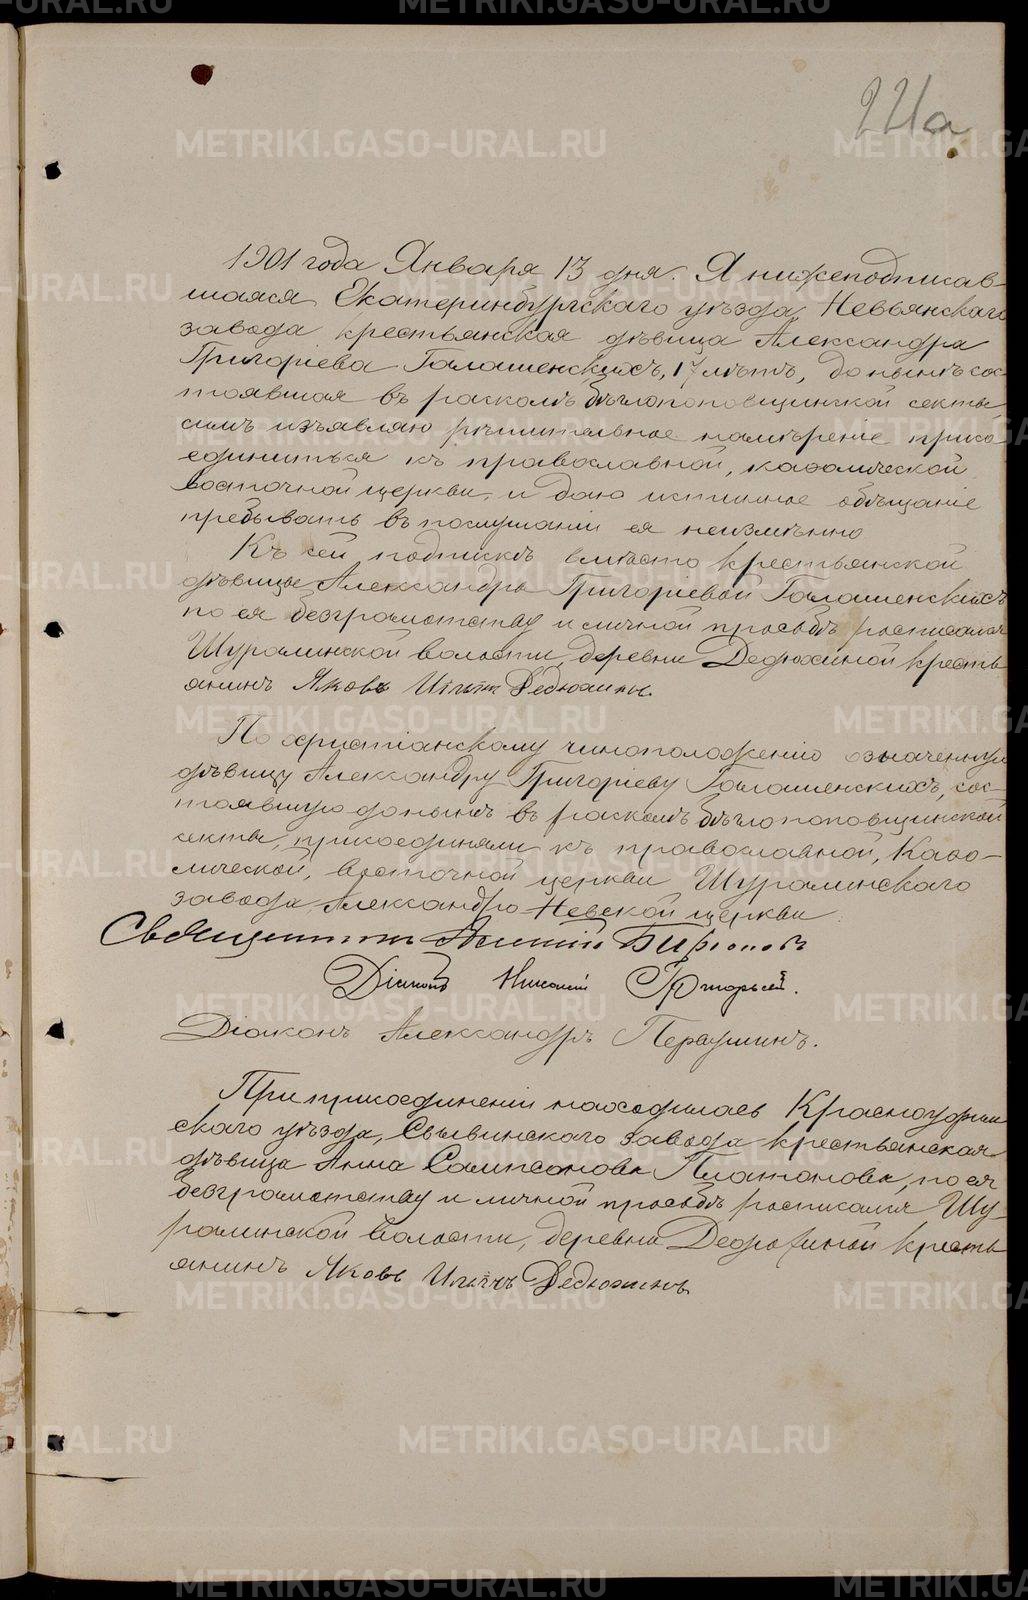 221а
1901 года Января 13 дня. Я нижеподписав-
шаяся Екатеринбургскаго уѣзда, Невьянскаго
завода крестьянская дѣвица Александра
Григоріева Галашенскихъ, 17 лѣтъ, до нынѣ сос-
тоявшая въ расколѣ бѣглопоповщинской секты
симъ изъявляю рѣшительное намѣреніе присо
единиться къ православной, каѳолической
восточной церкви, и даю истинное обѣщаніе
пребывать въ послушаніи ея неизмѣнно
Къ сей подпискѣ вмѣсто крестьянской
дѣвицы Александры Григоріевой Галашенскихъ
по ея безграмотству и личной просьбѣ росписался
Шуралинской волости, деревни Дедюхиной кресть
янинъ Яковъ Дедюхинъ.
По христіанскому чиноположенію означенную
дѣвицу Александру Григоріеву Галашенскихъ, сос-
тоявшую донынѣ въ расколѣ бѣглопоповщинской
секты, присоединили къ православной, Каѳо-
лической, восточной церкви Шуралинскаго
завода Александро-Невской церкви
Священникъ
Діаконъ Николай
Діаконъ Александръ Первушинъ.
При присоединеніи находилась Красноуфим
скаго уѣзда, Сылвинскаго завода крестьянская
дѣвица Анна Сампсонова Платонова, по ея
безграмотству и личной просьбѣ росписался Шу-
ралинской волости, деревни Дедюхиной кресть
янинъ Яковъ Дедюхинъ
METRIKI.GASO-URAL.RU